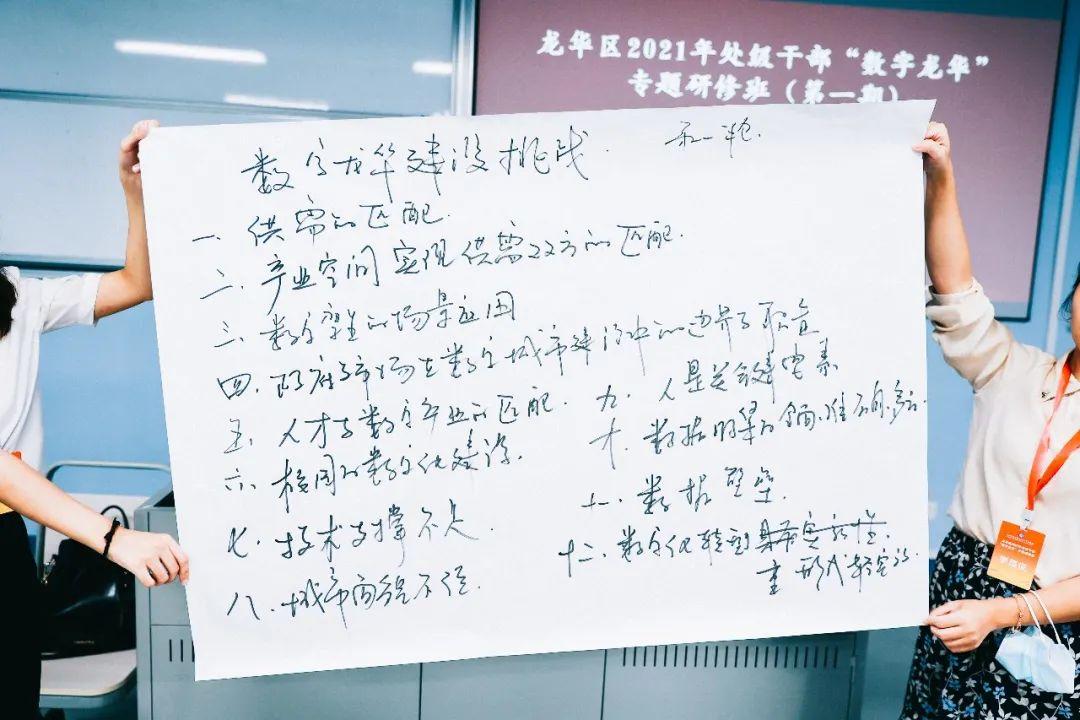 龙华区2021年处级干部“数字龙华”
专题研修班（第一期）
数字龙华建设挑战
一、供需的匹配
二、产业空间实现供需双方的匹配
三、数字孪生的场景应用
四、政府与市场在数字城市建设中的边界与职责
五、人才与数字产业的匹配
六、校园的数字化建设
七、技术支撑不足
八、城市商贸不强
九、人是关键要素
十、数据的准确
十一、数据壁垒
十二、数字化转型
重形式轻实效